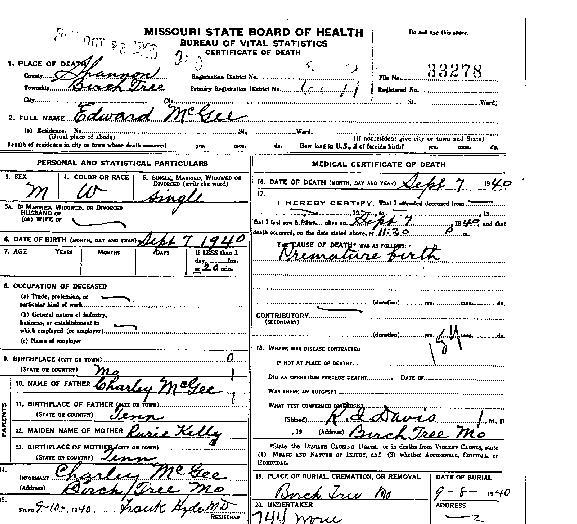 MISSOURI STATE BOARD OF HEALTH
BUREAU OF VITAL STATISTICS
CERTIFICATE OF DEATH
Do not use this space.
OCT 22
1. PLACE OF DEATH
County Shannon Registration District No. File No. 33278
Township Birch Tree Primary Registration District No. Registered No.
City No. St. Ward)
2. FULL NAME Edward McGee
(a) Residence. No. St. Ward.
(Usual place of abode) (If nonresident give city or town and State)
Length of residence in city or town where death occurred yrs. mos. ds. How long in U.S., if of foreign birth? yrs. mos. ds.
PERSONAL AND STATISTICAL PARTICULARS
3. SEX 4. COLOR OR RACE 5. SINGLE, MARRIED, WIDOWED OR DIVORCED (write the word)
M W Single
5A. IF MARRIED, WIDOWED, OR DIVORCED
HUSBAND OF
(OR) WIFE OF
6. DATE OF BIRTH (MONTH, DAY AND YEAR) Sept 7 1940
7. AGE YEARS MONTHS DAYS If LESS than 1
day, hrs.
or 20 min.
8. OCCUPATION OF DECEASED
(a) Trade, profession, or
particular kind of work
(b) General nature of industry,
business, or establishment in
which employed (or employer)
(c) Name of employer
9. BIRTHPLACE (CITY OR TOWN)
(STATE OR COUNTRY) Mo
PARENTS
10. NAME OF FATHER Charley McGee
11. BIRTHPLACE OF FATHER (CITY OR TOWN)
(STATE OR COUNTRY) Tenn
12. MAIDEN NAME OF MOTHER Kelly
13. BIRTHPLACE OF MOTHER (CITY OR TOWN)
(STATE OR COUNTRY) Tenn
14. INFORMANT Charley McGee
(Address) Birch Tree Mo
15. FILED 9-10-1940 Frank Hyde MD
REGISTRAR
MEDICAL CERTIFICATE OF DEATH
16. DATE OF DEATH (MONTH, DAY AND YEAR) Sept 7 1940
17. I HEREBY CERTIFY, That I attended deceased from
that I last saw h alive on Sept 7 1940, and that
death occurred, on the date stated above, at 11:30
THE CAUSE OF DEATH WAS AS FOLLOWS:
Premature birth
(duration) yrs. mos. ds.
CONTRIBUTORY
(SECONDARY)
(duration) yrs. mos. ds.
18. WHERE WAS DISEASE CONTRACTED
IF NOT AT PLACE OF DEATH?
DID AN OPERATION PRECEDE DEATH? DATE OF
WAS THERE AN AUTOPSY?
WHAT TEST CONFIRMED DIAGNOSIS?
(Signed) Davis M. D.
, 19 (Address) Birch Tree Mo
19. PLACE OF BURIAL, CREMATION, OR REMOVAL DATE OF BURIAL
Birch Tree Mo 9-8-1940
20. UNDERTAKER ADDRESS
None